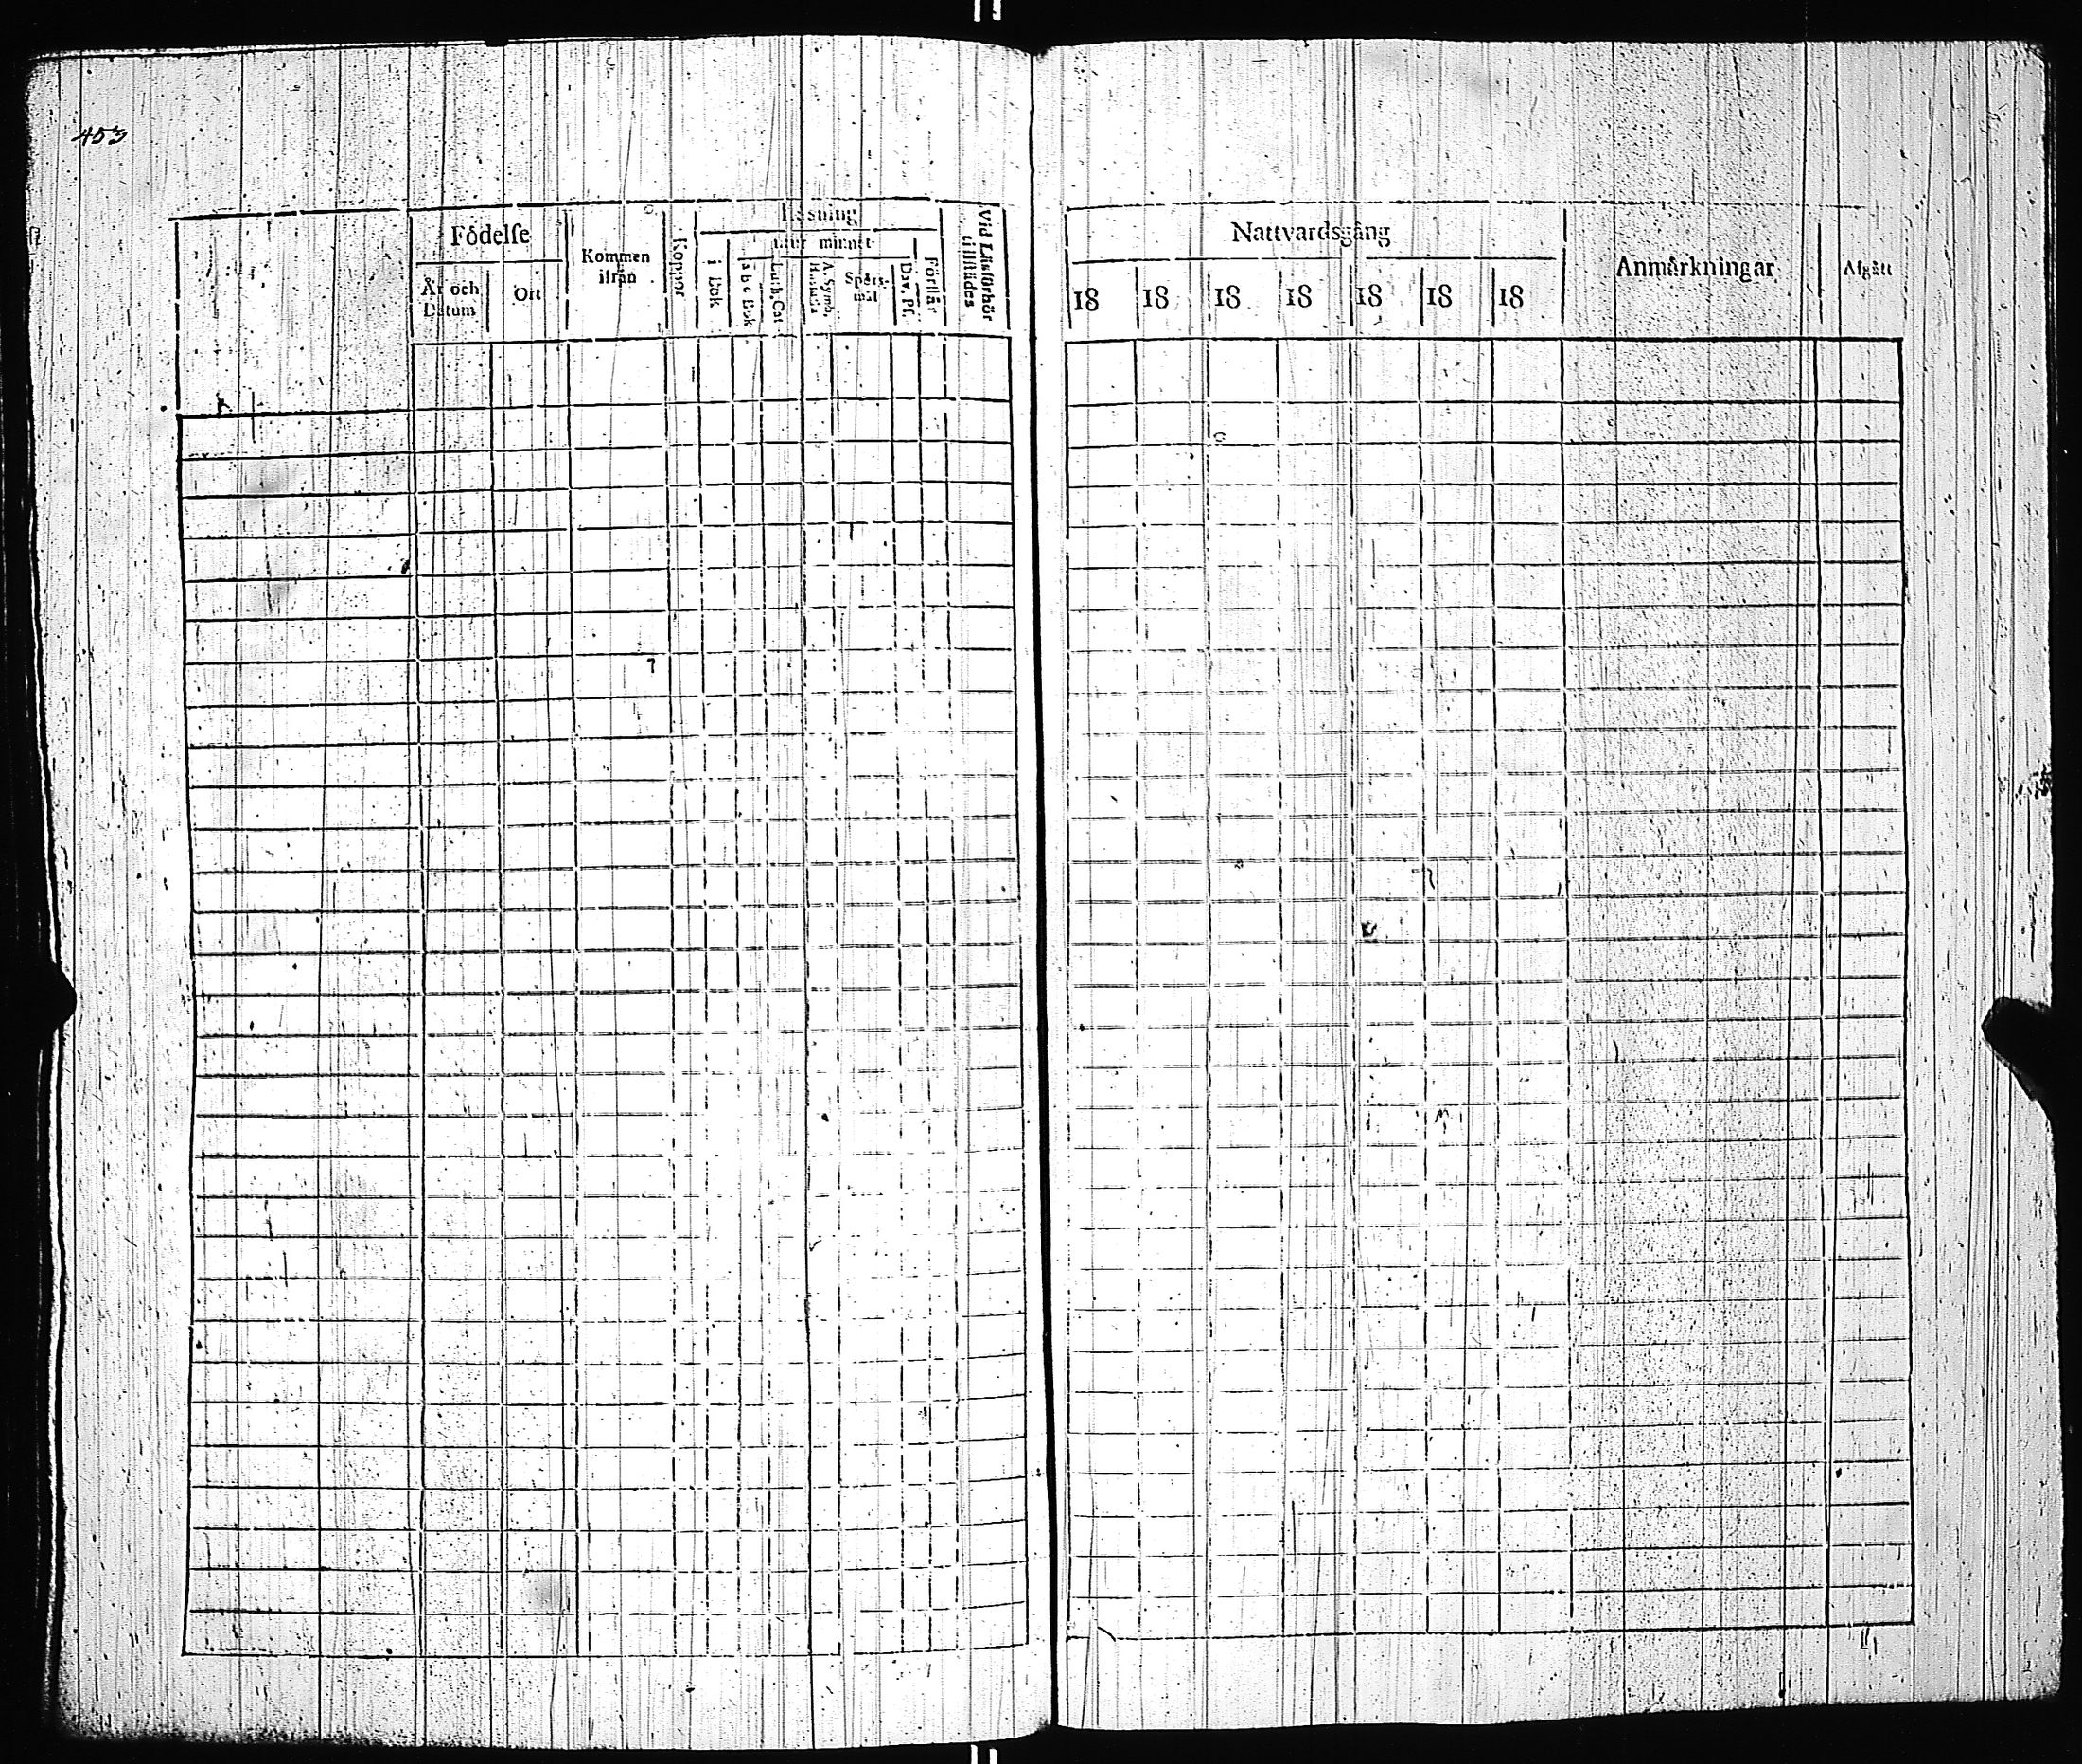 453
Födelse
År och
Datum
Ort
Kommen
ifrån
Koppor
Läsning
i Bok
utur minnet
a b c Bok
Luth. Cat
A. Symb.
Hustafla
Spörs-
mål
Dav. Ps.
Förstår
Vid Läsförhör
tillstädes
Nattvardsgång
18 18 18 18 18 18 18
Anmärkningar
Afgått